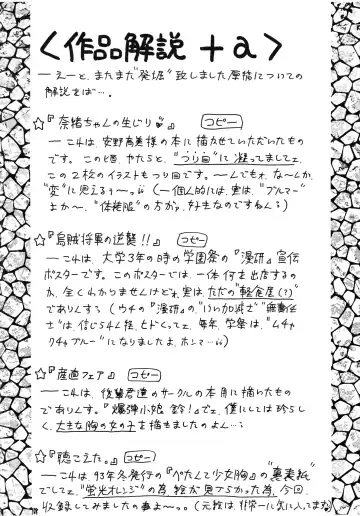 <作品解説 +a>
—えーと、またまた“発掘”致しました原稿についての
解説をば…。
☆『奈緒ちゃんの生じり♥』 コピー
—これは、安野高美様の本に描かせていただいたもの
です。この頃、やたらと、“つり目”に凝ってましてェ、
この2枚のイラストもつり目です。〜んでもォ、な〜んか、
“変”に見える〜〜っ (—個人的には、実は、“ブルマー”
よか〜、“体操服”の方がァ、好きなのですねん:)
☆『烏賊将軍の逆襲!!』 コピー
—これは、大学3年の時の学園祭の『漫研』宣伝
ポスターです。このポスターでは、一体何を出店するの
か、全くわかりませんけどォ、実は、ただの“軽食屋(?)”
でありんす:(ウチの『漫研』の、“いい加減さ”“無責任
さ”は、信じらんん程、ヒドくってェ、毎年、学祭は、“ムチャ
クチャブルー”になりましたよ、ホンマ…)
☆『産直フェア』 コピー
—これは、後輩君達のサークルの本用に描いたもの
でありんす。『爆弾小娘 鈴!』でェ、僕にしては珍らし
く、大きな胸の女の子を描きましたのよん…:
☆『聴こえた。』 コピー
—これは、93年冬発行の『ぺたんて少女胸』の“裏表紙”
でしてェ、“蛍光オレンジ”の為、絵が見づらかった為、今回、
収録してみましたの事よ〜っ。(元絵は、非常に気に入ってまな)